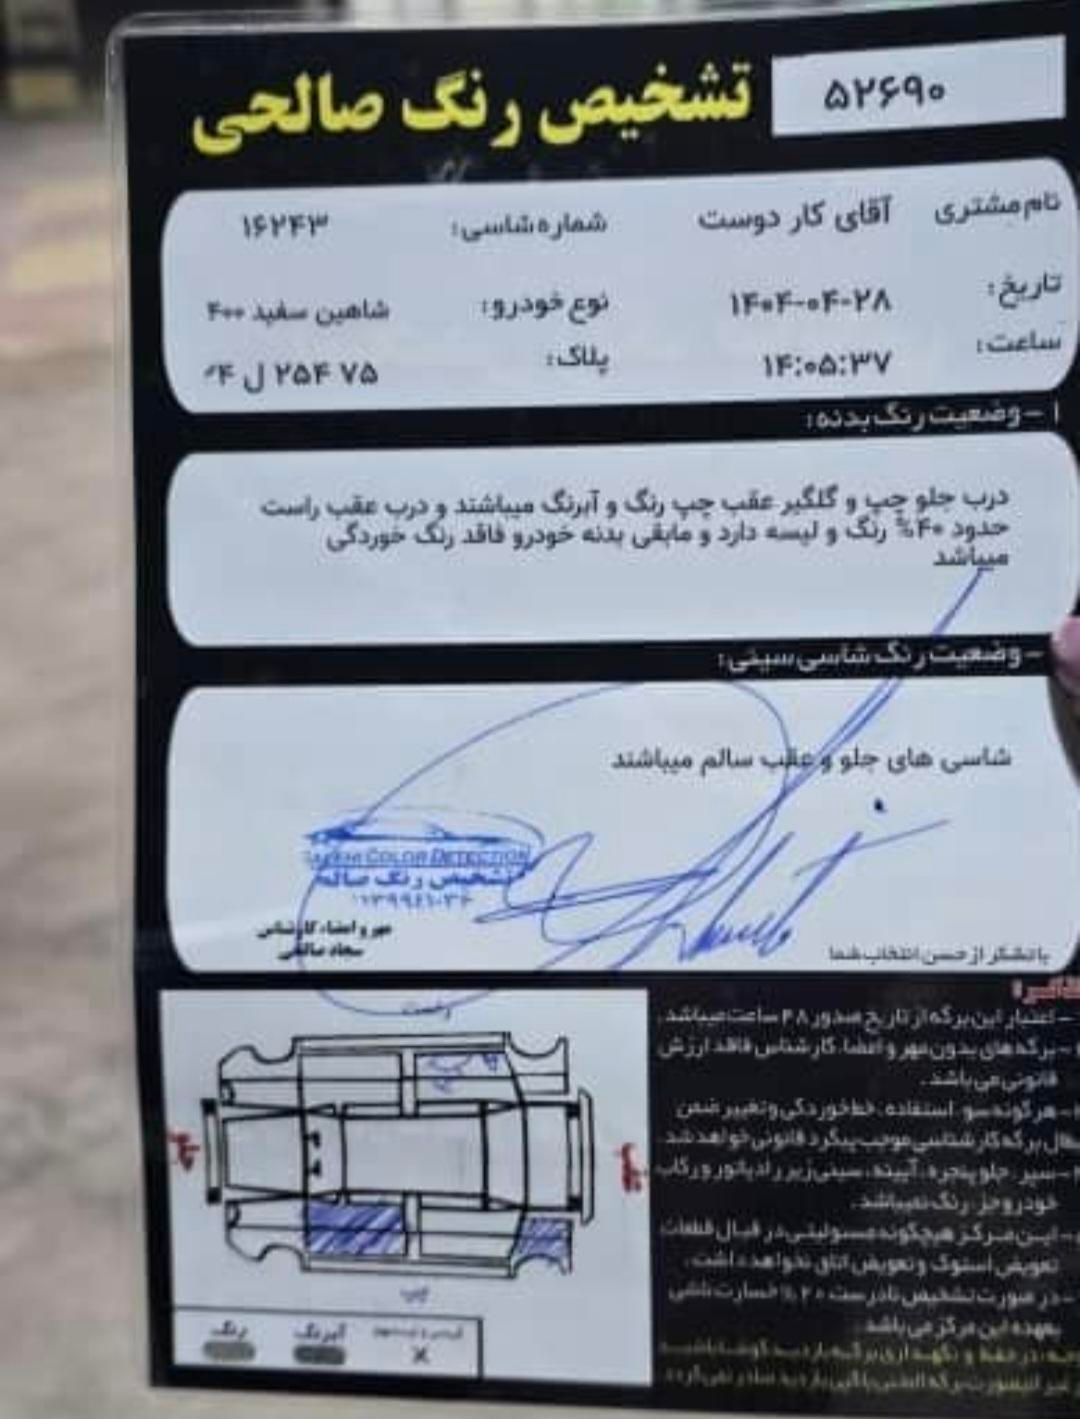 تشخیص رنگ صالحی
۵۲۶۹۰
نام مشتری آقای کار دوست شماره شاسی: ۱۶۲۴۳
تاریخ: ۱۴۰۴-۰۴-۲۸ نوع خودرو: شاهین سفید ۴۰۰
ساعت: ۱۴:۰۵:۳۷ پلاک: ۷۵ ۲۵۴ ل
۱ - وضعیت رنگ بدنه:
درب جلو چپ و گلگیر عقب چپ رنگ و آبرنگ میباشند و درب عقب راست
حدود ۴۰% رنگ و لیسه دارد و مابقی بدنه خودرو فاقد رنگ خوردگی
میباشد
- وضعیت رنگ شاسی سینی:
شاسی های جلو و عقب سالم میباشند
COLOR DETECTION
تشخیص رنگ
مهر و امضاء کارشناس
سجاد صالحی
با تشکر از حسن انتخاب شما
- اعتبار این برگه از تاریخ صدور ۴۸ ساعت میباشد.
- برگه های بدون مهر و امضاء کارشناس فاقد ارزش
قانونی می باشد.
- هرگونه سوء استفاده، خط خوردگی و تغییر ضمن
برگه کارشناسی موجب پیگرد قانونی خواهد شد
- سپر، جلو پنجره، آیینه، سینی زیر رادیاتور و رکاب
خودرو جزء رنگ نمیباشد.
- این مرکز هیچگونه مسولیتی در قبال قطعات
تعویض استوک و تعویض اتاق نخواهد داشت.
- در صورت تشخیص نادرست ۲۰% خسارت ناشی
بعهده این مرکز می باشد
راست
جلو
عقب
چپ
رنگ
آبرنگ
X